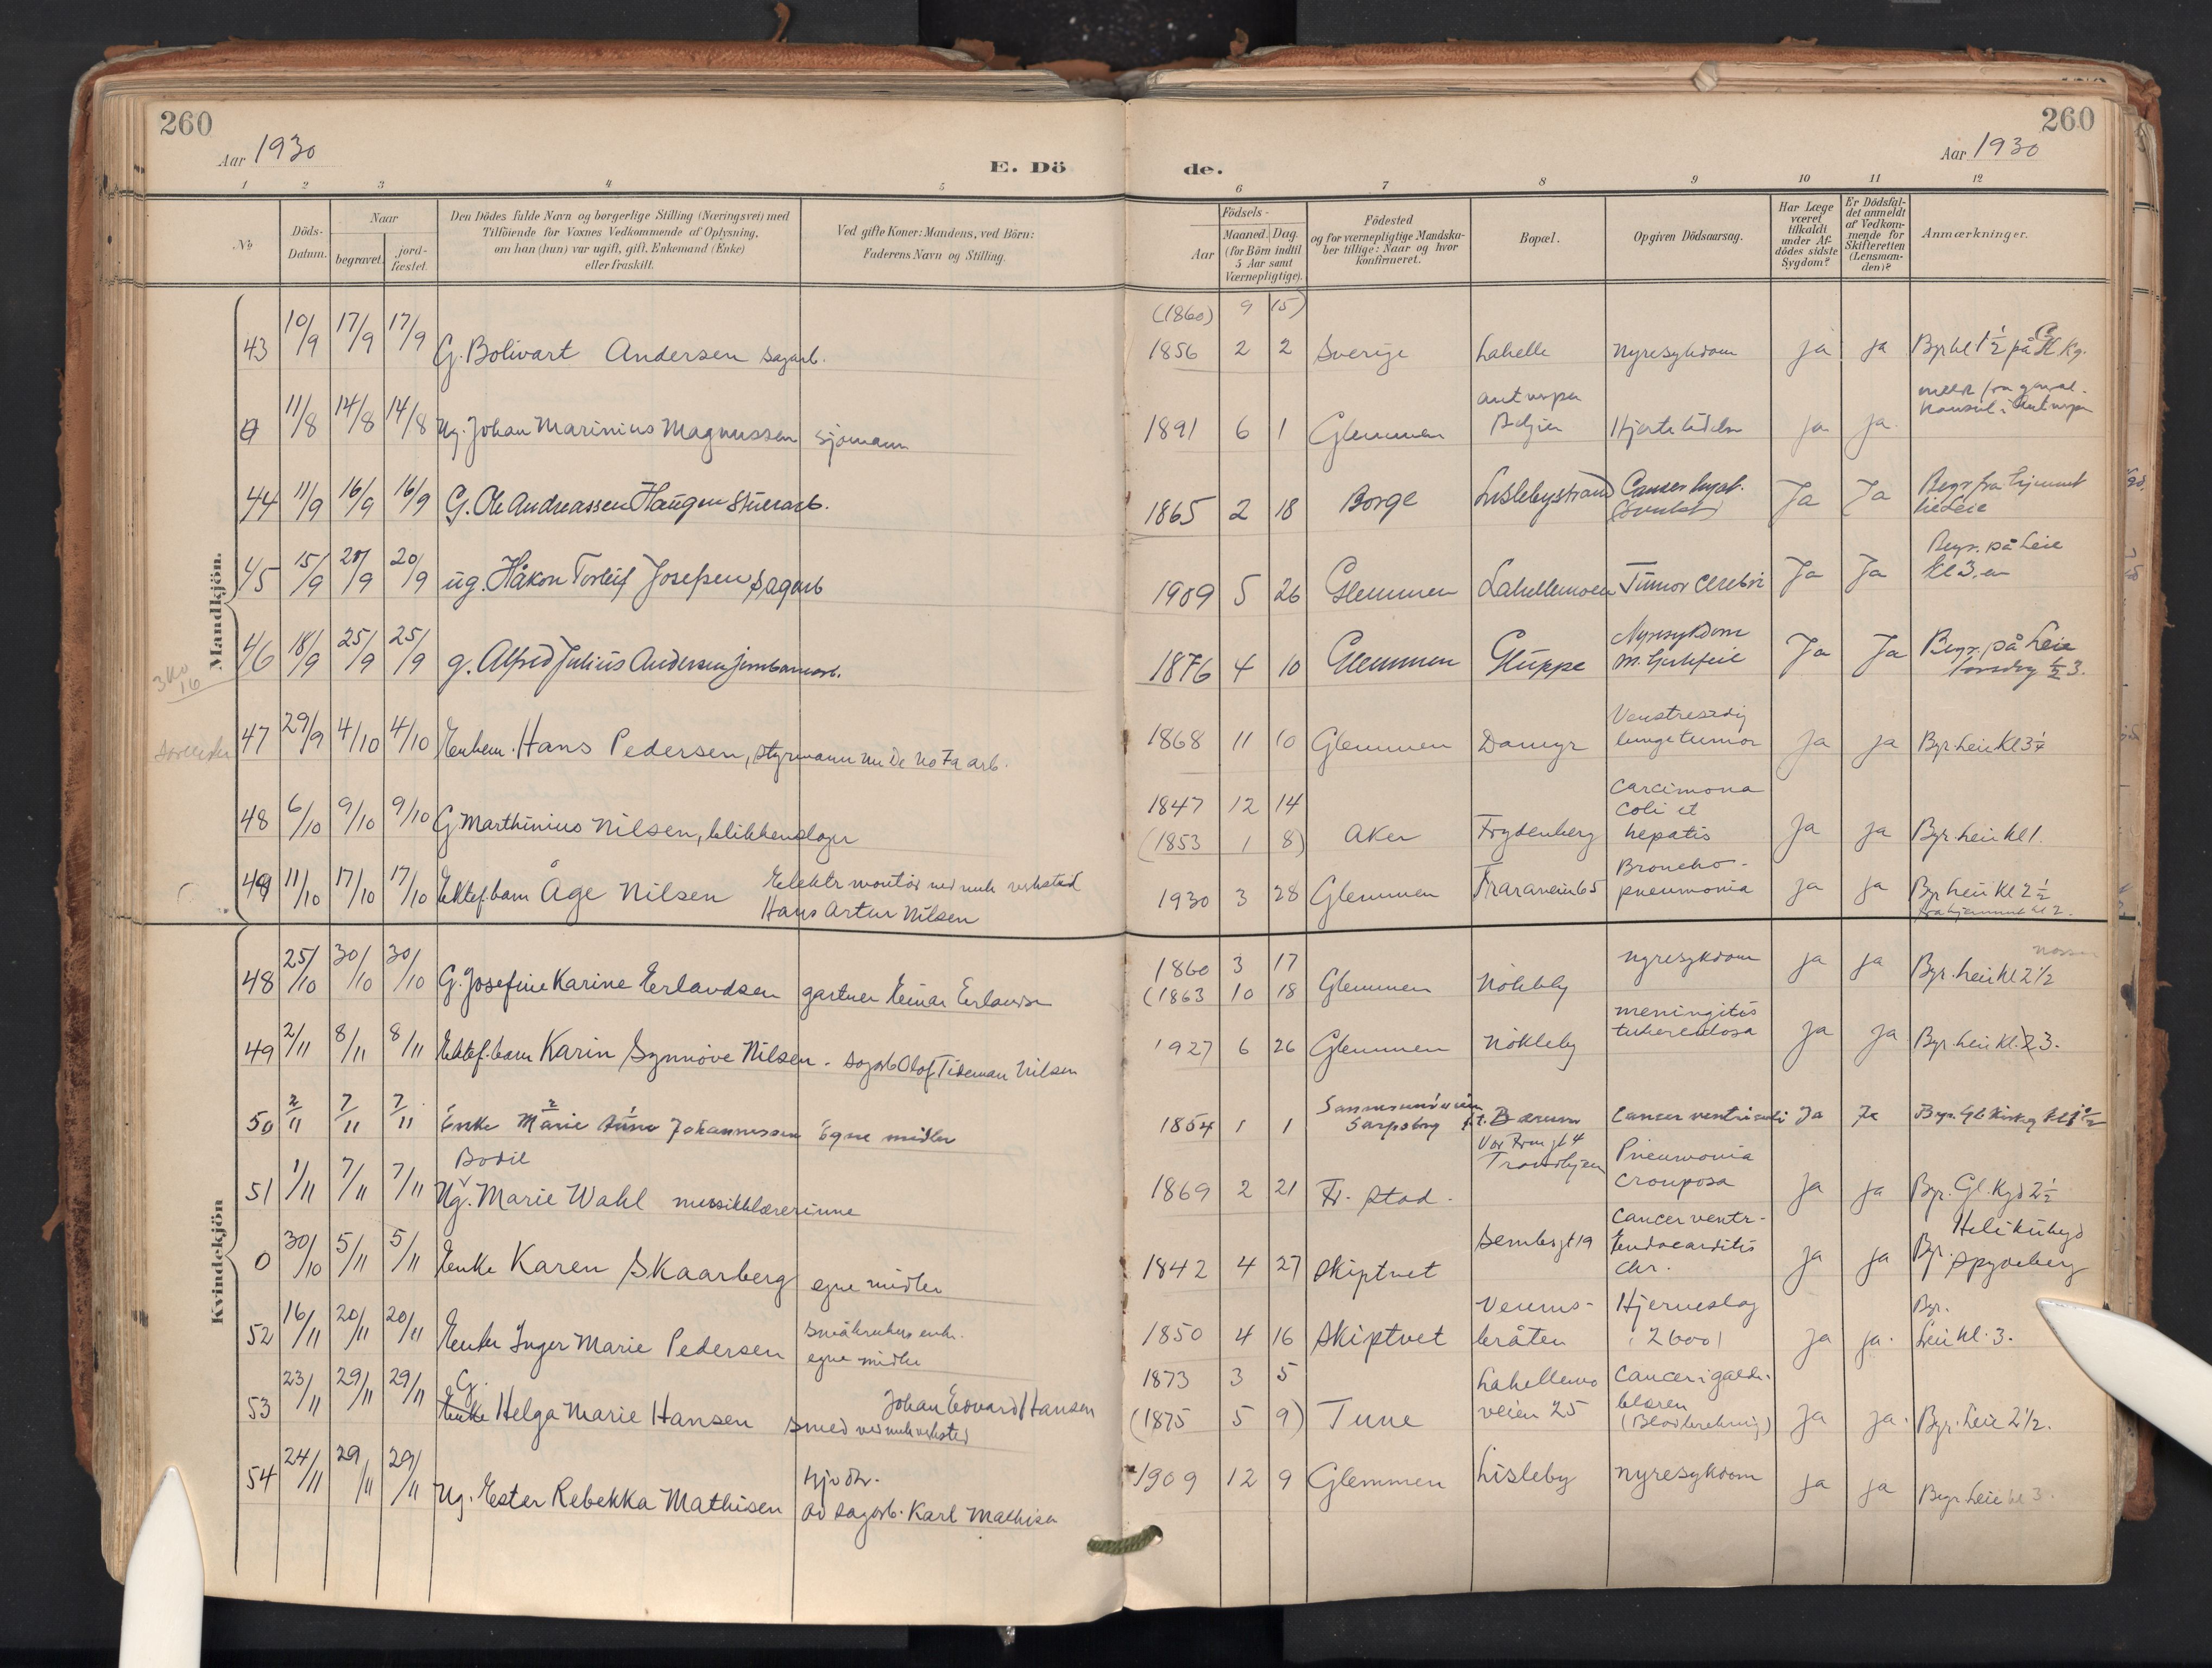 260
Aar 1930
E. Dö
1 2 3 4 5
No
Döds-Datum.
Naar
begravet.
jord-fæstet.
Den Dödes fulde Navn og borgerlige Stilling (Næringsvei) med
Tilföiende for Voxnes Vedkommende af Oplysning,
om han (hun) var ugift, gift, Enkemand (Enke)
eller fraskilt.
Ved gifte Koner: Mandens, ved Börn:
Faderens Navn og Stilling.
Mandkjön.
43 10/9 17/9 17/9 G. Bolivart Andersen sagarb.
0 11/8 14/8 14/8 Ug. Johan Marinius Magnussen sjømann
44 11/9 16/9 16/9 G. Ole Andreassen Haugen stuerarb.
45 15/9 20/9 20/9 ug. Håkon Torleif Josefsen sagarb
46 18/9 25/9 25/9 g. Alfred Julius Andersen jernbanearb.
47 29/9 4/10 4/10 Enkem. Hans Pedersen, styrmann nu De No Fa arb.
48 6/10 9/10 9/10 G Marthinius Nilsen, blikkenslager
49 11/10 17/10 17/10 Ektef. barn Åge Nilsen Elektr montør ved mek verksted
Hans Artur Nilsen
Kvindekjön
48 25/10 30/10 30/10 G. Josefine Karine Erlandsen gartner Einar Erlandsen
49 2/11 8/11 8/11 Ektef. barn Karin Synnøve Nilsen - sagarb Olof Tideman Nilsen
50 2/11 7/11 7/11 Enke Marie Anne Johannessen Egne midler
Bodil
51 1/11 7/11 7/11 Ug. Marie Wahl musikklærerinne
0 30/10 5/11 5/11 Enke Karen Skaarberg egne midler
52 16/11 20/11 20/11 Enke Inger Marie Pedersen småbruker enke.
egne midler
G.
53 23/11 29/11 29/11 Enke Helga Marie Hansen Johan Edvard Hansen
smed ved mek verksted
54 24/11 29/11 29/11 Ug. Ester Rebekka Mathisen hj. dtr.
av sagarb. Karl Mathisen
260
Aar 1930
de.
6 7 8 9 10 11 12
Födsels-
Aar
Maaned. Dag.
(for Börn indtil
5 Aar samt
Værnepligtige).
Födested
og for værnepligtige Mandska-
ber tillige: Naar og hvor
konfirmeret.
Bopæl.
Opgiven Dödsaarsag.
Har Læge
været
tilkaldt
under Af-
dödes sidste
Sygdom?
Er Dödsfal-
det anmeldt
af Vedkom-
mende for
Skifteretten
(Lensman-
den)?
Anmærkninger.
(1860) 9 15)
1856 2 2 Sverige Lahelle nyresykdom ja ja
1891 6 1 Glemmen Antwerpen Belgien Hjertelidelse ja ja
1865 2 18 Borge Lislebystrand Cancer Ja Ja Begr fra hjemmet
1909 5 26 Glemmen Lahellemoen Tumor cerebri Ja Ja Begr. på Leie
Kl 3.
1876 4 10 Glemmen Gluppe Nyresykdom
m. hjertefeil Ja Ja Begr. på Leie
torsdag 1/2 3.
1868 11 10 Glemmen Damyr Venstresidig
lungetumor ja ja Bgr. Leie Kl 3
1847 12 14
(1853 1 8) Aker Frydenberg Carcinoma
coli et
hepatis ja ja Bgr. Leie kl 1.
1930 3 28 Glemmen Traraveien 65 Broncho-
pneumonia ja ja Bgr Leie Kl 2 1/2
fra hjemmet kl 2.
1860 3 17
(1863 10 18 Glemmen Nökleby nyresykdom ja ja Bgr. Leie kl 2 1/2
1927 6 26 Glemmen Nökleby meningitis
tuberculosa ja ja Bgr. Leie kl. 2 3.
1854 1 1 Sarpsborg Bærum Cancer ventriculi Ja Ja
1869 2 21 Fr. stad. Vor Frue gt 4
Trondhjem Pneumonia
crouposa ja ja Bgr. Gl. Kgd 2 1/2
1842 4 27 Skiptvet Cancer ventr-
Endocarditis
chr. ja ja Bgr. Heli kirkegd
Spydeberg
1850 4 16 Skiptvet Veums-
bråten Hjerneslag ja ja. Bgr.
Leie kl. 3.
1873 3 5
(1875 5 9) Tune Lahellemo
veien 25 Cancer i galde-
blæren ja ja. Bgr. Leie 2 1/2.
1909 12 9 Glemmen Lisleby nyresykdom ja ja Begr Leie kl 3.